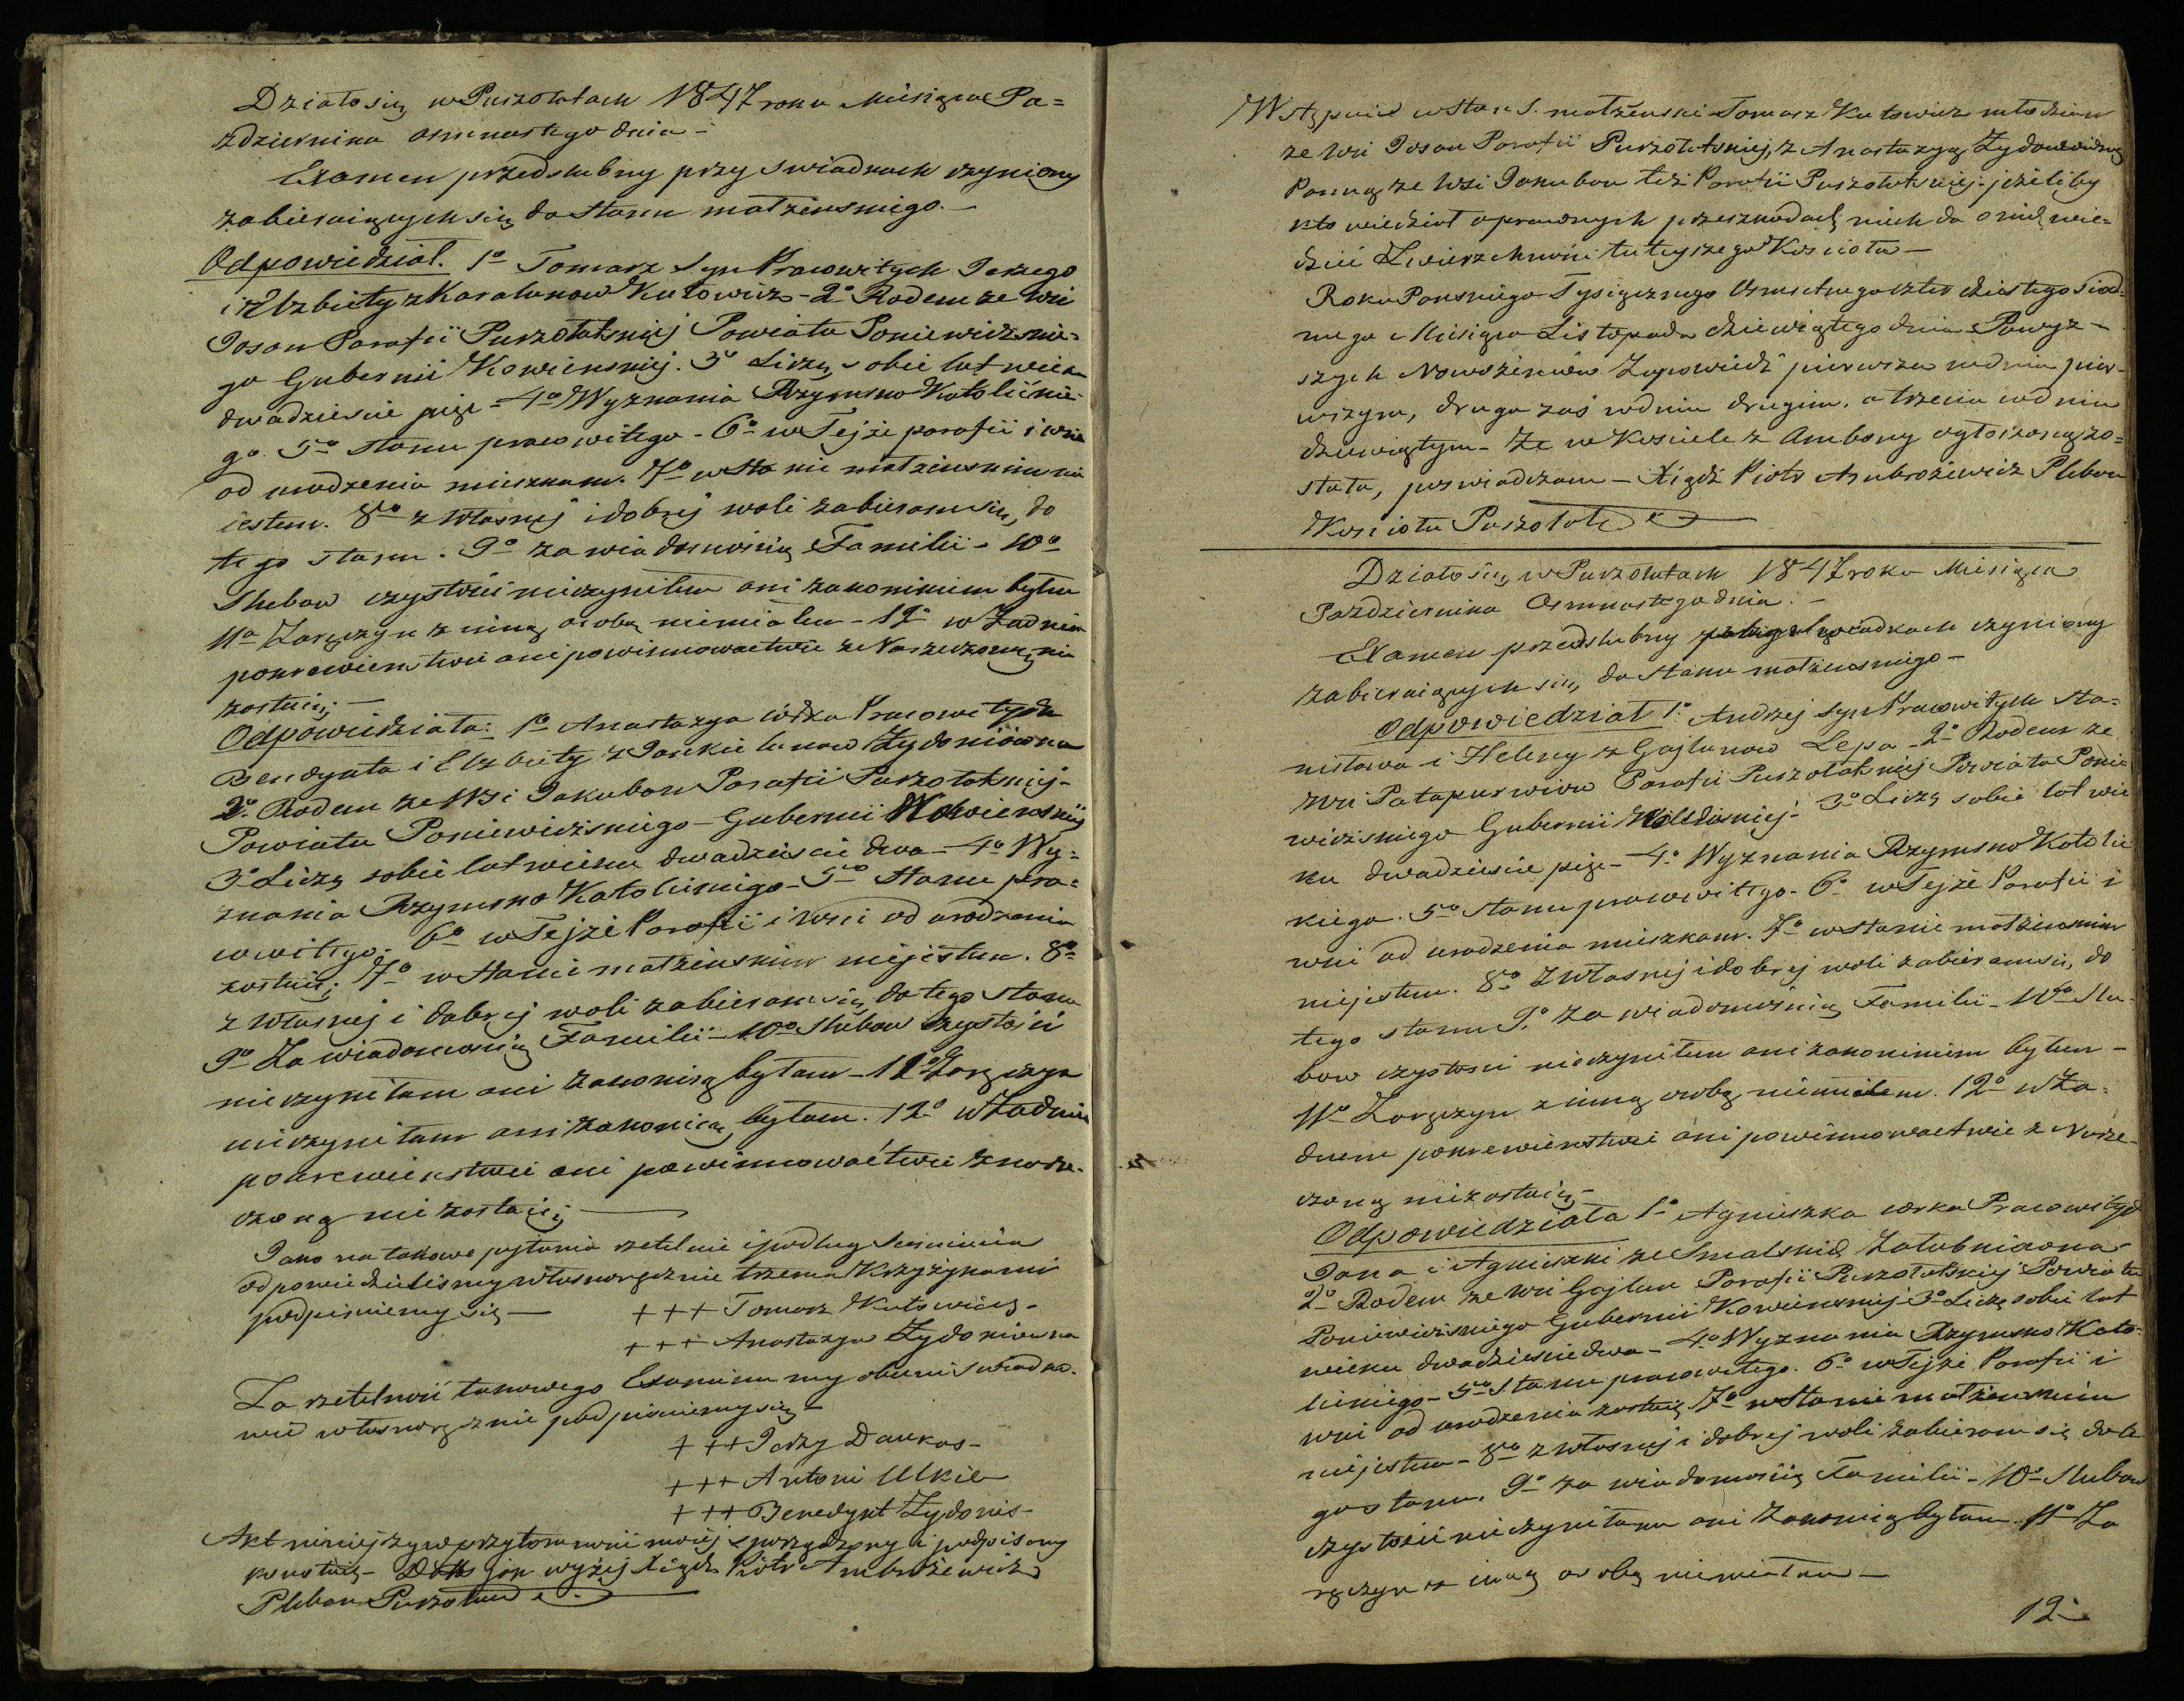 Działo się w Puszołatach 1847 roku Miesiąca Pa=
zdziernika osmnastego dnia -
Examen przedslubny przy swiadkach czyniony
zabieraiących się do stanu małzenskiego. -
Odpowiedział. 1o Tomasz syn Pracowitych Jerzego
i Elzbiety z Karalunow Kutowicz - 2o Rodem ze wsi
Josan Parafii Puszołatskiej Powiatu Poniewiezskie-
go Gubernii Kowienskiej. 3o Liczę sobie lat wieku
dwadziescie pięc - 4o Wyznania Rzymsko Katolickie-
go. 5o stanu pracowitego - 6o w Tejże parafii i wsi
od urodzenia mieszkam. 7o w stanie małzenskim nie
iestem. 8o z własnej i dobrej woli zabieram się do
tego stanu. 9o za wiadomoscią Familii - 10o
Slubow czystości nieczyniłem ani zakonnikiem byłem
11o Zaręczyn z inną osobą niemiałem - 12o w Zadnem
pokrewienstwie ani powinnowactwie ze Narzeczoną nie
zostaię; -
Odpowiedziała: 1o Anastazya córka Pracowitych
Bendykta i Elzbiety z Jankielunow Zydoniówna
2o. Rodem ze Wsi Jakuban Parafii Puszołatskiej -
Powiatu Poniewiezskiego - Gubernii Kowienskiej
3o Liczę sobie lat wieku dwadziescie dwa - 4o Wy=
znania Rzymsko Katolickiego - 5o stanu pra=
cowitego. 6o w Tejże Parafii i wsi od urodzenia
zostaię; 7o w stanie małzenskim niejestem. 8o
z własnej i dobrej woli zabieram się do tego stanu
9o Za wiadomoscią Familii - 10o Slubow czystości
nieczyniłam ani zakonicą byłam - 11o Zaręczyn
nieczyniłam ani zakonicą byłam. 12o w Zadnim
pokrewienstwie ani powinnowactwie z narze-
czoną nie zostaię;
Jako na takowe pytania rzetelnie i podług sumienia
odpowiedzielismy własnoręcznie trzema Krzyżykami
podpisuiemy się - +++ Tomasz Kutowicz -
+++ Anastazya Zydoniowna
Za rzetelność takowego Examinu my obecni swiadko-
wie własnoręcznie podpisuiemy się -
+++ Jerzy Daukas -
+++ Antoni Ulkie
+++ Benedykt Zydonis -
Akt niniejszy w przytomności moiej sporządzony i podpisany
jak wyżej Xiądz Piotr Ambrożewicz
Pleban Puszołacki
Wstąpuie w stan S. małżenski Tomasz Kutowicz młodzian
ze wsi Josan Parafii Puszołatskiej, z Anastazyą Zydoniowną
Panną ze Wsi Jakuban też Parafii Puszołatskiej. jeżeliby
kto wiedział o prawnych przeszkodach niech da o nich wie=
dzieć Zwierzchności tutejszego Koscioła -
Roku Panskiego Tysiącznego Osmsetnego czterdziestego siód=
mego Miesiąca Listopada dziewiątego dnia Powyż-
szych Nowożeńców Zapowiedź pierwsza w dniu pier-
wszym, druga zaś w dniu drugim, a trzecia w dniu
dziewiątym - Ze w Kosciele z Ambony ogłoszoną zo=
stała, poswiadczam - Xiądz Piotr Ambrożewicz Pleban
Koscioła Puszołat
Działo się w Puszołatach 1847 roku Miesiąca
Pazdziernika Osmnastego dnia. -
Examen przedslubny przy swiadkach czyniony
zabieraiących się do stanu małzenskiego -
Odpowiedział 1o Andrzej syn Pracowitych Sta=
nisława i Heleny z Gajlunow Lepa - 2o Rodem ze
wsi Parafii Puszołatskiej Powiatu Ponie
wiezskiego Gubernii 3o Liczę sobie lat wie
ku dwadziescie pięc - 4o Wyznania Rzymsko Katolic
kiego. 5o stanu pracowitego. 6o w Tejże Parafii i
wsi od urodzenia mieszkam. 7o w stanie małzenskim
niejestem. 8o z własnej i dobrej woli zabieram się do
tego stanu 9o za wiadomoscią Familii - 10o Slu-
bow czystosci nieczyniłem ani zakonnikiem byłem -
11o Zaręczyn z inną osobą niemiałem. 12o w Za-
dnem pokrewienstwie ani powinnowactwie z Narze-
czoną niezostaię -
Odpowiedziała 1o Agnieszka corka Pracowitych
Jana i Agnieszki ze Smalskich
2o Rodem ze wsi Gajlun Parafii Puszołatskiej Powiatu
Poniewiezskiego Gubernii Kowienskiej 3o Liczę sobie lat
wieku dwadziescie dwa - 4o Wyznania Rzymsko Kato-
lickiego - 5o Stanu pracowitego. 6o w Tejże Parafii i
wsi od urodzenia zostaię 7o w stanie małzenskim
niejestem - 8o z własnej i dobrej woli zabieram się do te
go stanu. 9o za wiadomoscią Familii - 10o Slubow
czystości nieczyniłam ani Zakonicą byłam. 11o Za
ręczyn z inną osobą niemiałam -
12o